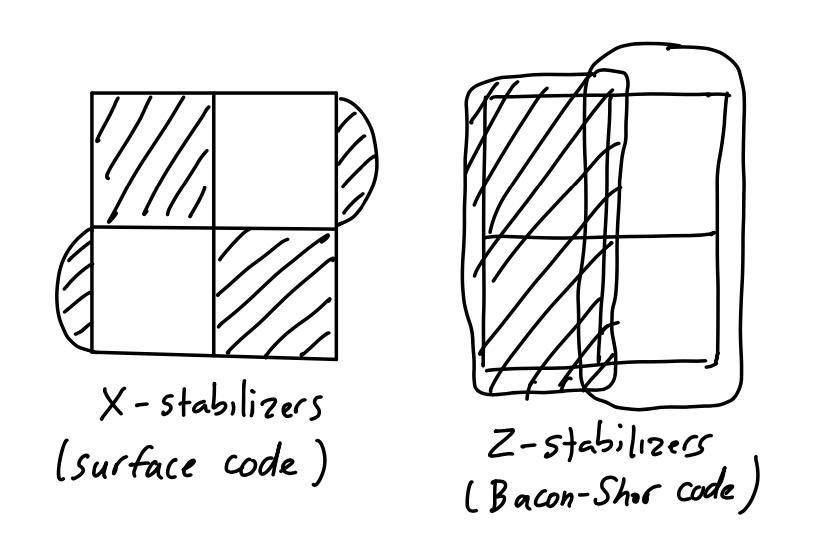 X-stabilizers
(surface code)
Z-stabilizers
(Bacon-Shor code)